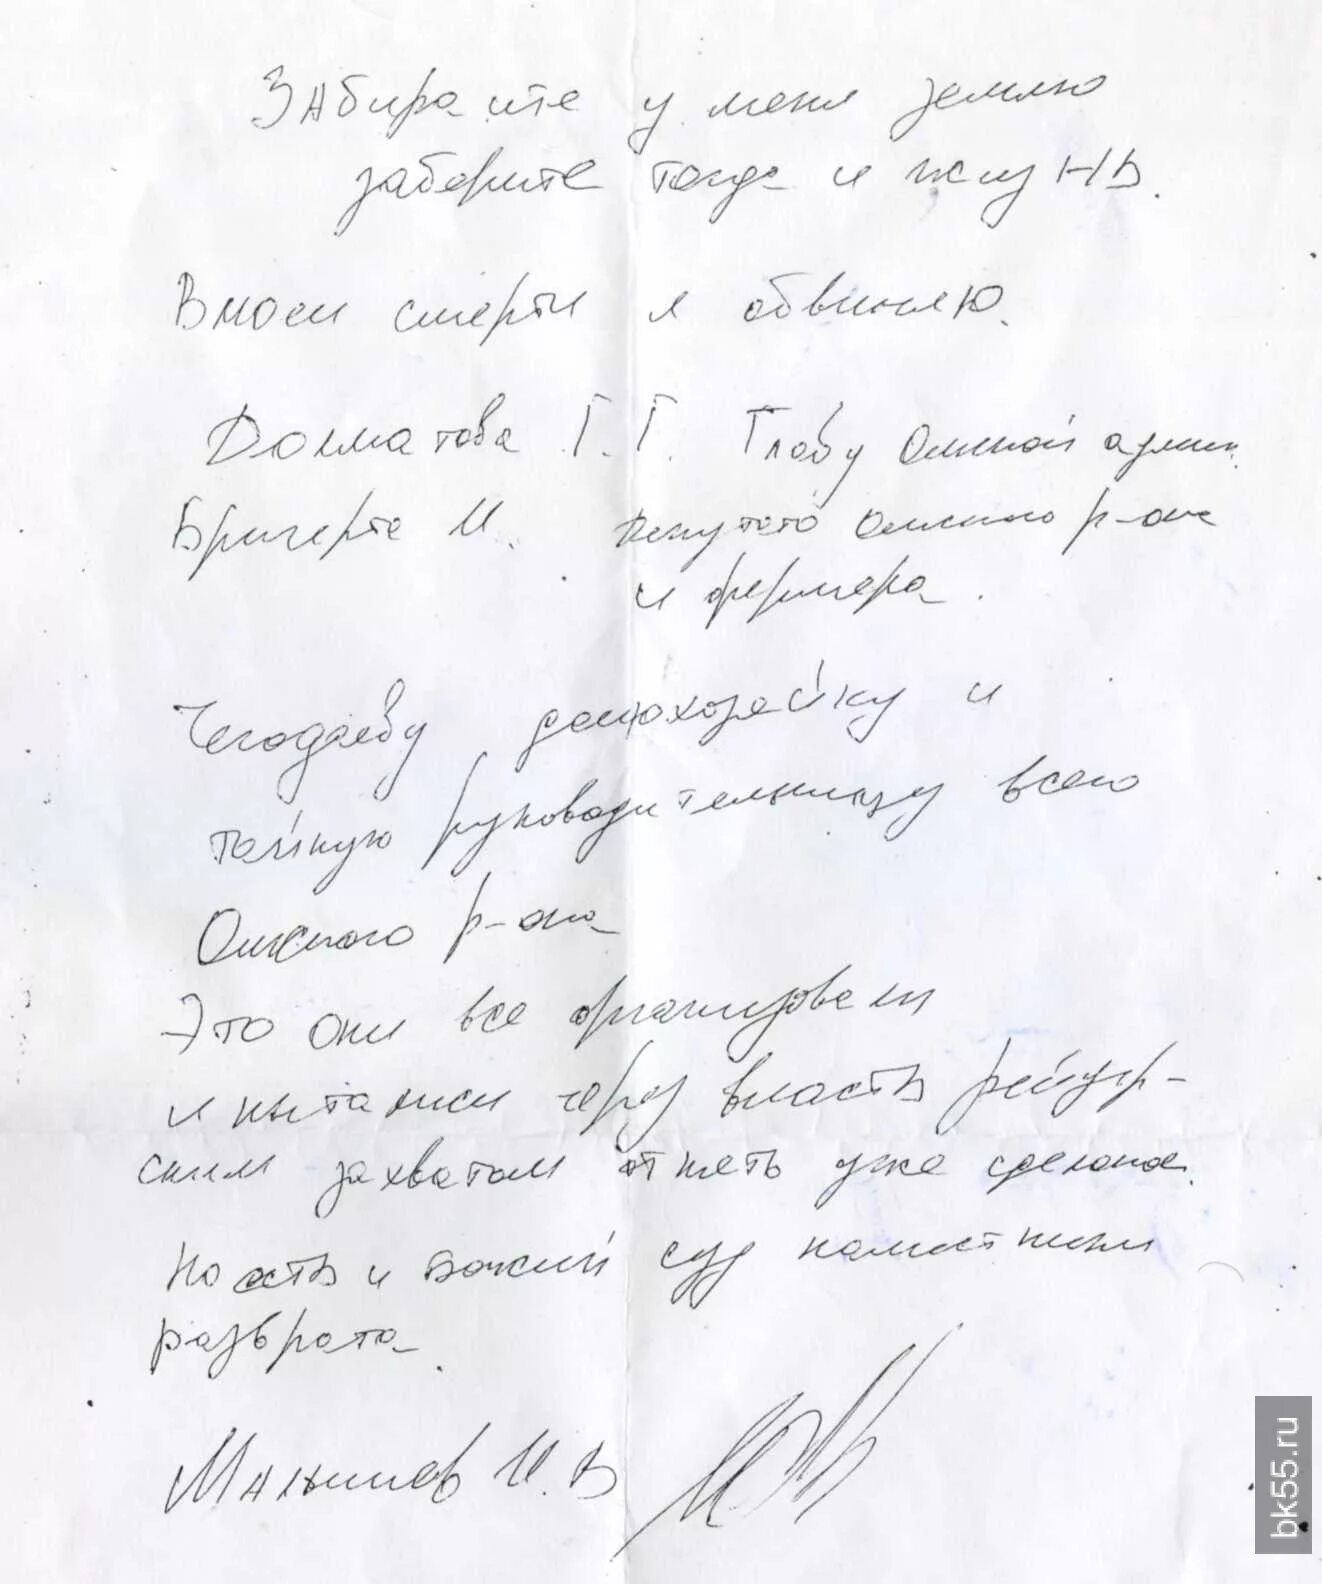 Забираите у меня землю
заберите тогда и жизнь.
В моеи смерти я обвиняю.
Долматова Г.Г. Главу Омской админ.
Бригерта И. Депутата Омского р-она
и фермера.
Чегодаеву домохозяйку и
тайную руководительницу всего
Омского р-она
Это они все организовали
и пытались через власть рейдер-
ским захватом отнять уже сделаное.
Но есть и Божий суд
разврата.
Малышев И.В
bk55.ru